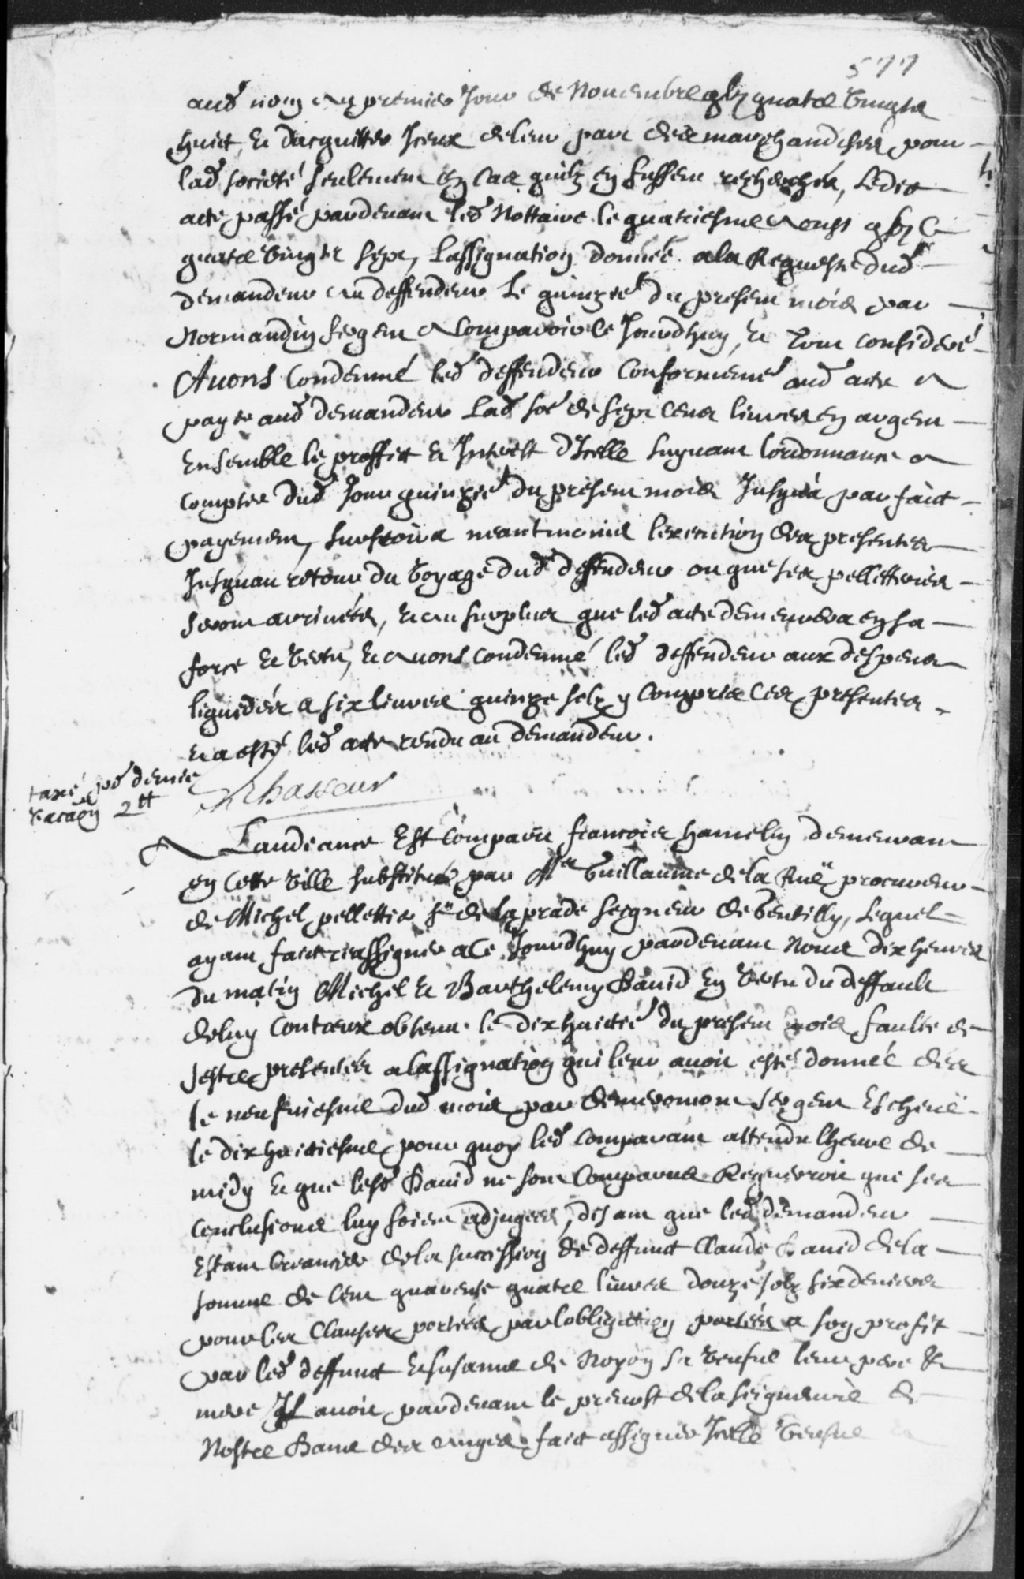 577
aud nom au premier Jour de Nouembre gbjc quatre vingts
huict, Et dacquitter Iceux de leur part des marchandises pour
lad societé seulement En cas quilz en fussent recherchés, ledit
acte passé pardeuant led Nottaire le quatriesme aoust gbjc
quatre vingts sept, Lassignation donnée a la Requeste dud
demandeur au deffendeur le quinze du present mois par
Normandin sergent a Comparoir ce Jourdhuy, Et tout consideré
Auons Condenné led deffendeur Conformement aud acte a
payer aud demandeur lad soe de sept cens liures en argent
Ensemble le proffit Et Interest dIcelle suyuant lordonnance a
compter dud Jour quinze du present mois Jusqua parfaict
payement, surseoira neantmoins lexecution des presentes
Jusquau retour du voyage dud deffendeur ou que ses pelletteries
seront arriuées, Et au surplus que led acte demeurera en sa
force Et vertu, Et Auons condenné led deffendeur aux despens
liquidés a six liures quinze solz y Compris ces presentes
Et a esté led acte rendu au demandeur.
taxé pd demie
vacaon 2tt
RChasseur
A Laudiance Est Comparu francois hamelin demeurant
en Cette ville substitué par Me Guillaume de la Rüe procureur
de Michel pelletier sr de la prade seigneur de Gentilly, lequel
ayant faict reassigner a Ce Jourdhuy pardeuant Nous dix heures
du matin Michel Et Barthelemy Dauid En vertu du deffault
deluy Contreux obtenu le dix huictie du present mois faulte de
sestre presentés a lassignation qui leur auoit esté donnée dés
le neufuiesme dud mois par demeromont sergent Escheüe
le dix huictiesme, pour quoy led Comparant attendu lheure de
midy Et que lesd Dauid ne sont Comparus Requerroit que ses
Conclusions luy soient adjugees, disant que led demandeur
Estant creancier de la succession de deffunct Claude Dauid de la
somme de Cent quarente quatre liures douze solz six deniers
pour les Clauses portées par lobligation portée a son profit
par led deffunct Et susanne de Noyon sa veufue leur pere Et
mere Il auoit pardeuant le preuost de la seigneurie de
Nostre Dame des anges faict assigner Icelle veufue